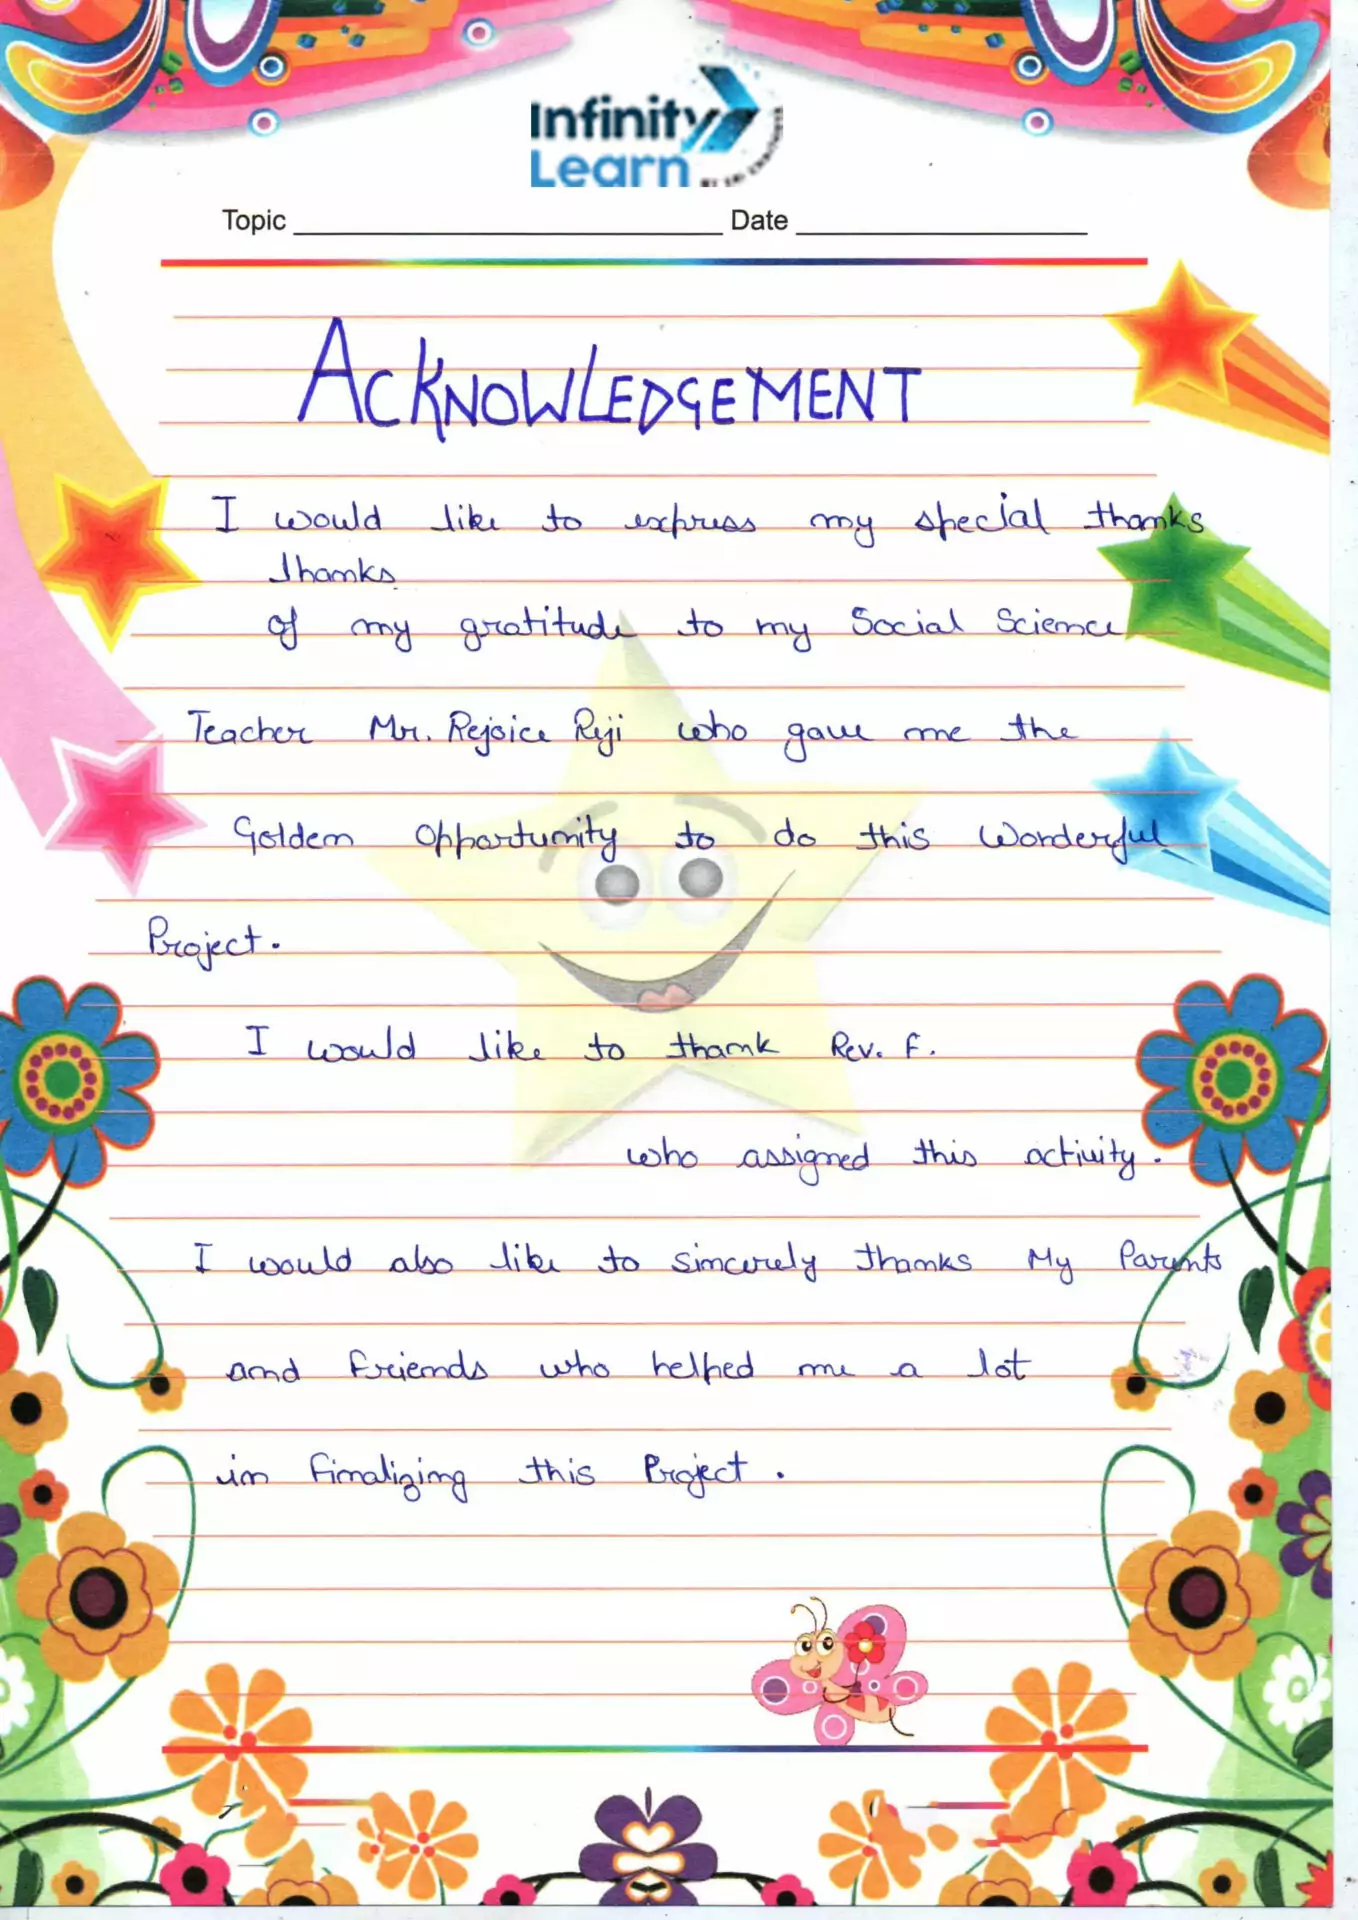 Infinity
Learn
Topic Date
ACKNOWLEDGEMENT
I would like to express my special thanks
thanks
of my gratitude to my Social Science
Teacher Mr. Rejoice Reji who gave me the
Golden Opportunity to do this Wonderful
Project.
I would like to thank Rev. F.
who assigned this activity.
I would also like to sincerely thanks My Parents
and Friends who helped me a lot
in finalizing this Project.